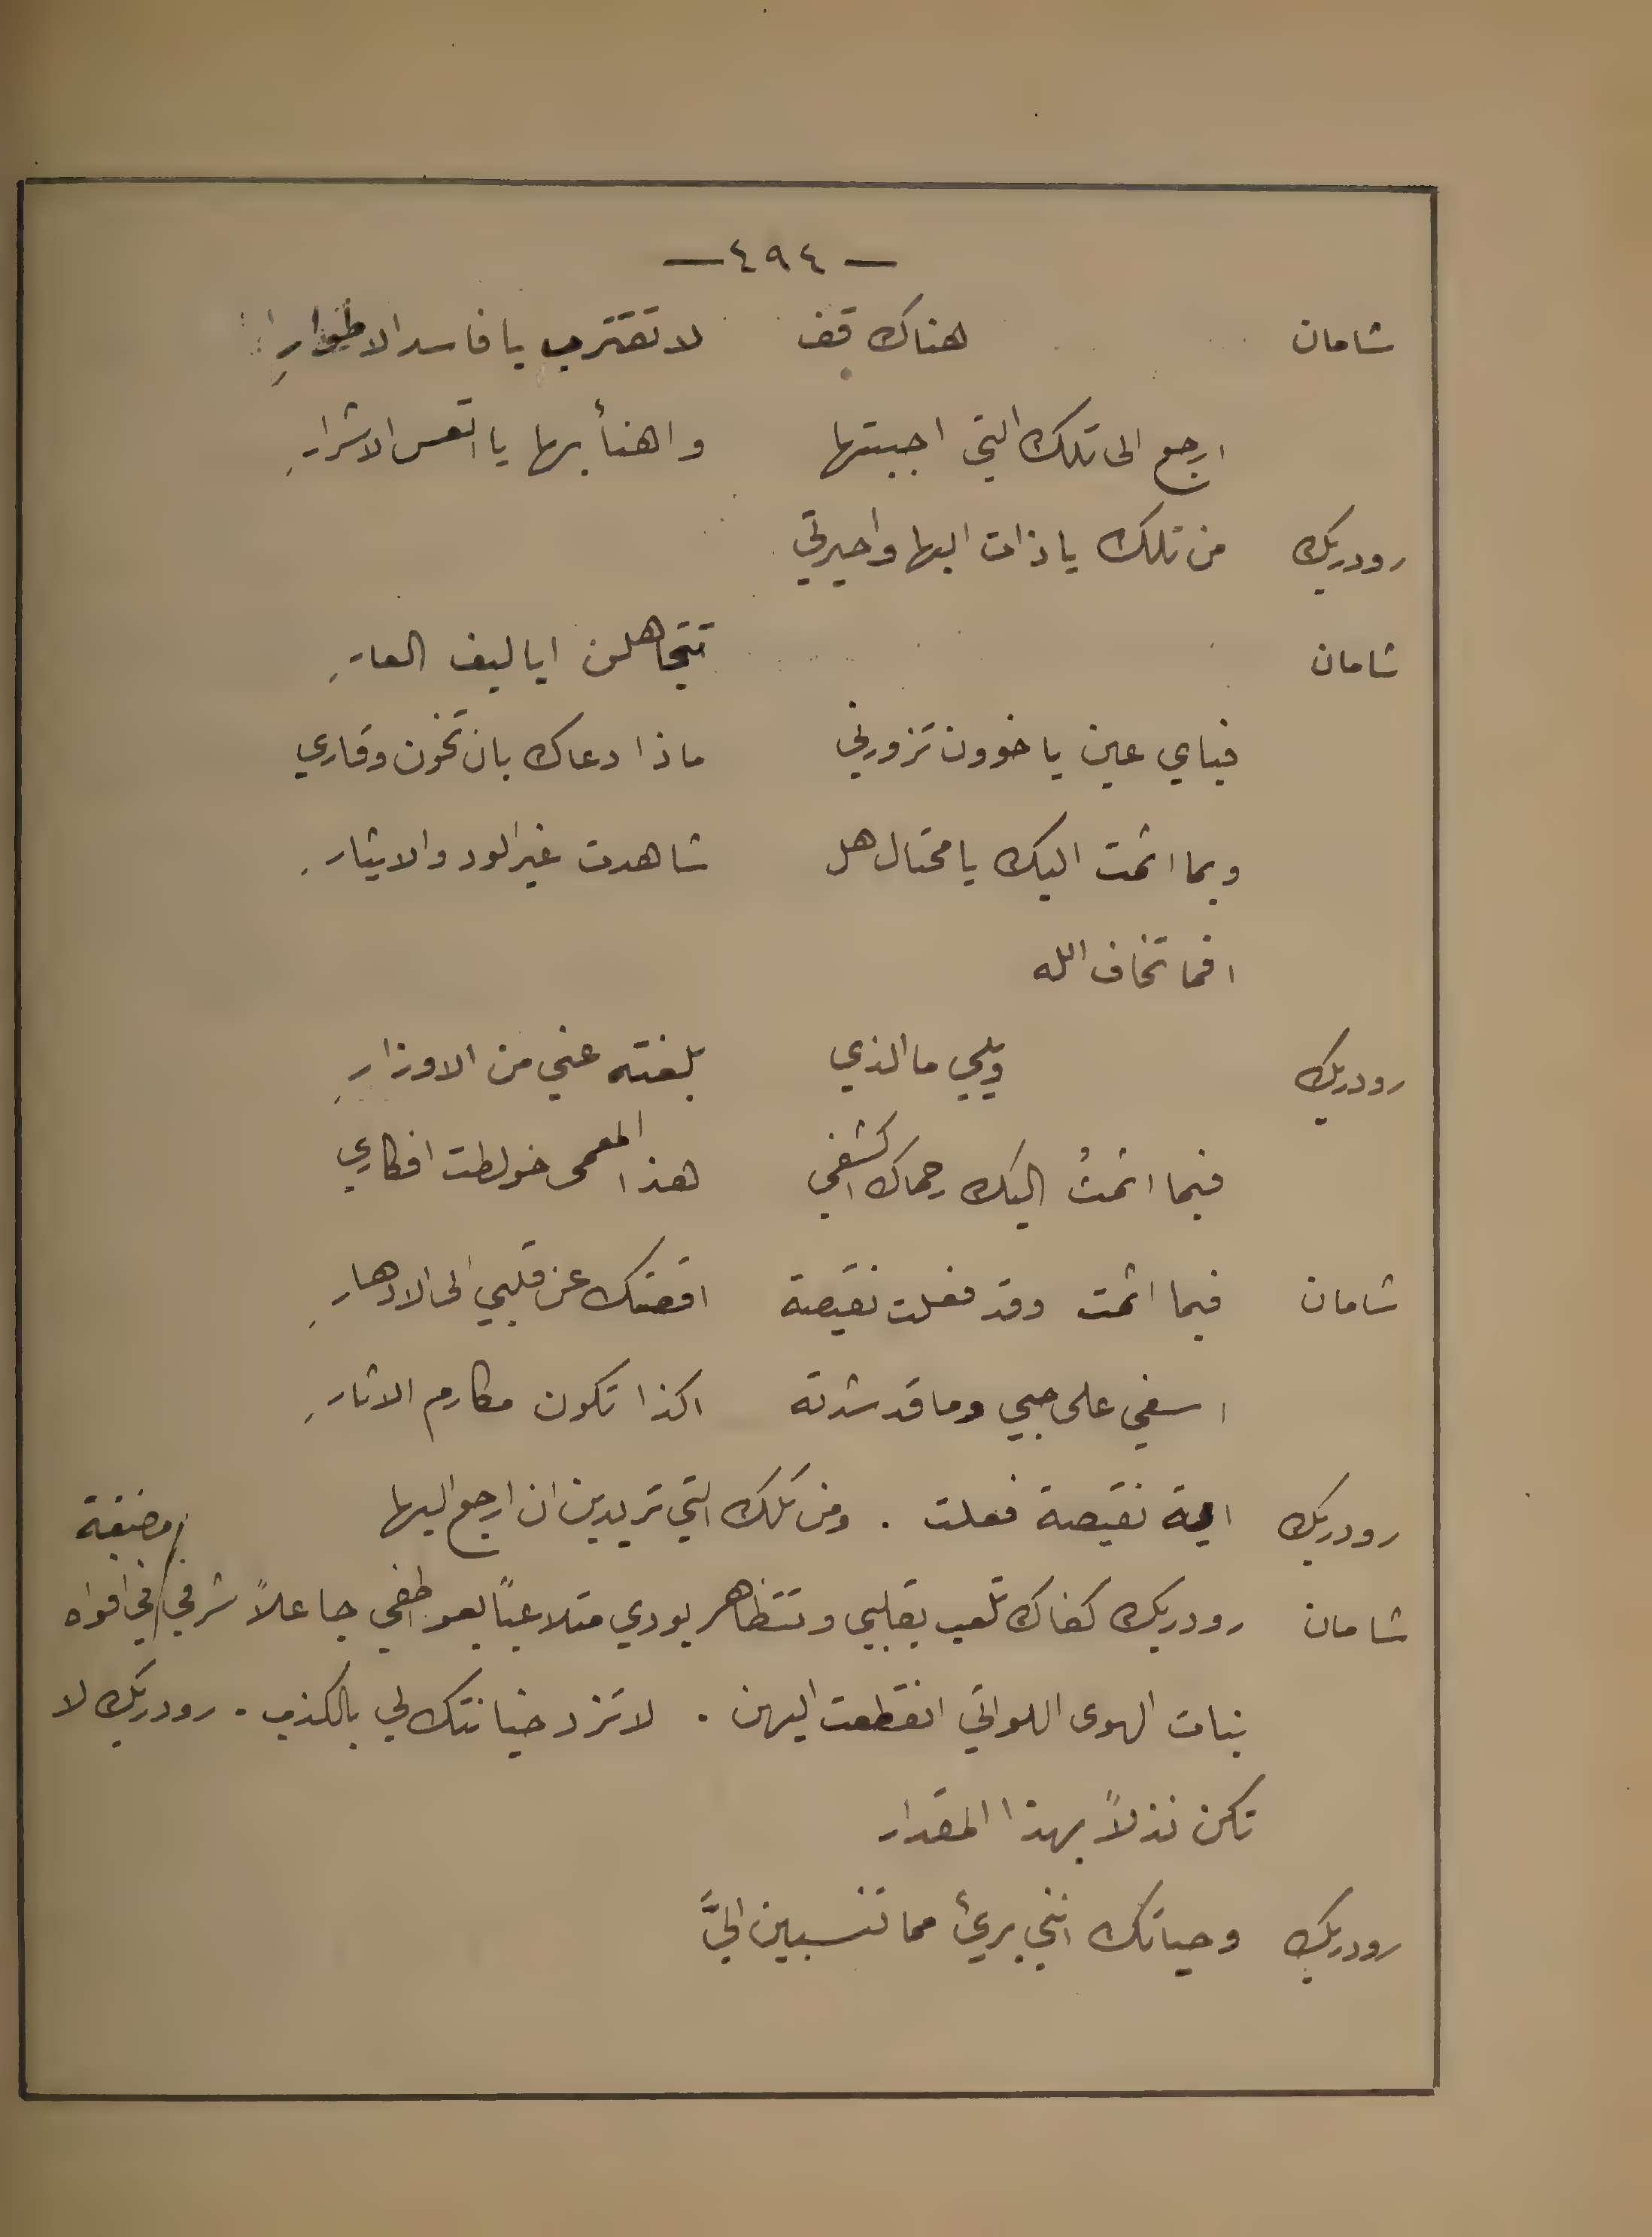 — ٤٩٤ —
شامان هناك قف لا تقترب يا فاسد الاطوارِ
ارجع الى تلك التي احببتها واهنأ بها يا اتعس الاشرارِ
رودريك من تلك يا ذات البها واحيرتي
شامان تتجاهلن ايا ليف العارِ
فباي عين يا خوون تزورني ماذا دعاك بان تخون وقاري
وبما اثمت اليك يا محتال هل شاهدت غير الود والايثارِ
افما تخاف الله
رودريك ويلي ما الذي بلغته عني من الاوزارِ
فبما اثمتُ اليك رحماك اكشفي هذا المعمى خولطت افكاري
شامان فبما اثمت وقد فعلت نقيصة اقصتك عن قلبي الى الادهارِ
اسفي على حبي وما قد شدته اكذا تكون مكارم الاثارِ
رودريك اية نقيصة فعلت . ومن تلك التي تريدين ان ارجع اليها
مضغة
شامان رودريك كفاك تلعب بقلبي وتتظاهر بودي متلاعباً بعواطفي جاعلاً شرفي في افواه
بنات الهوى اللواتي انقطعت اليهن . لا تزد خيانتك لي بالكذب . رودريك لا
تكن نذلاً بهذا المقدار
رودريك وحياتك انني بريئ مما تنسبين اليَّ